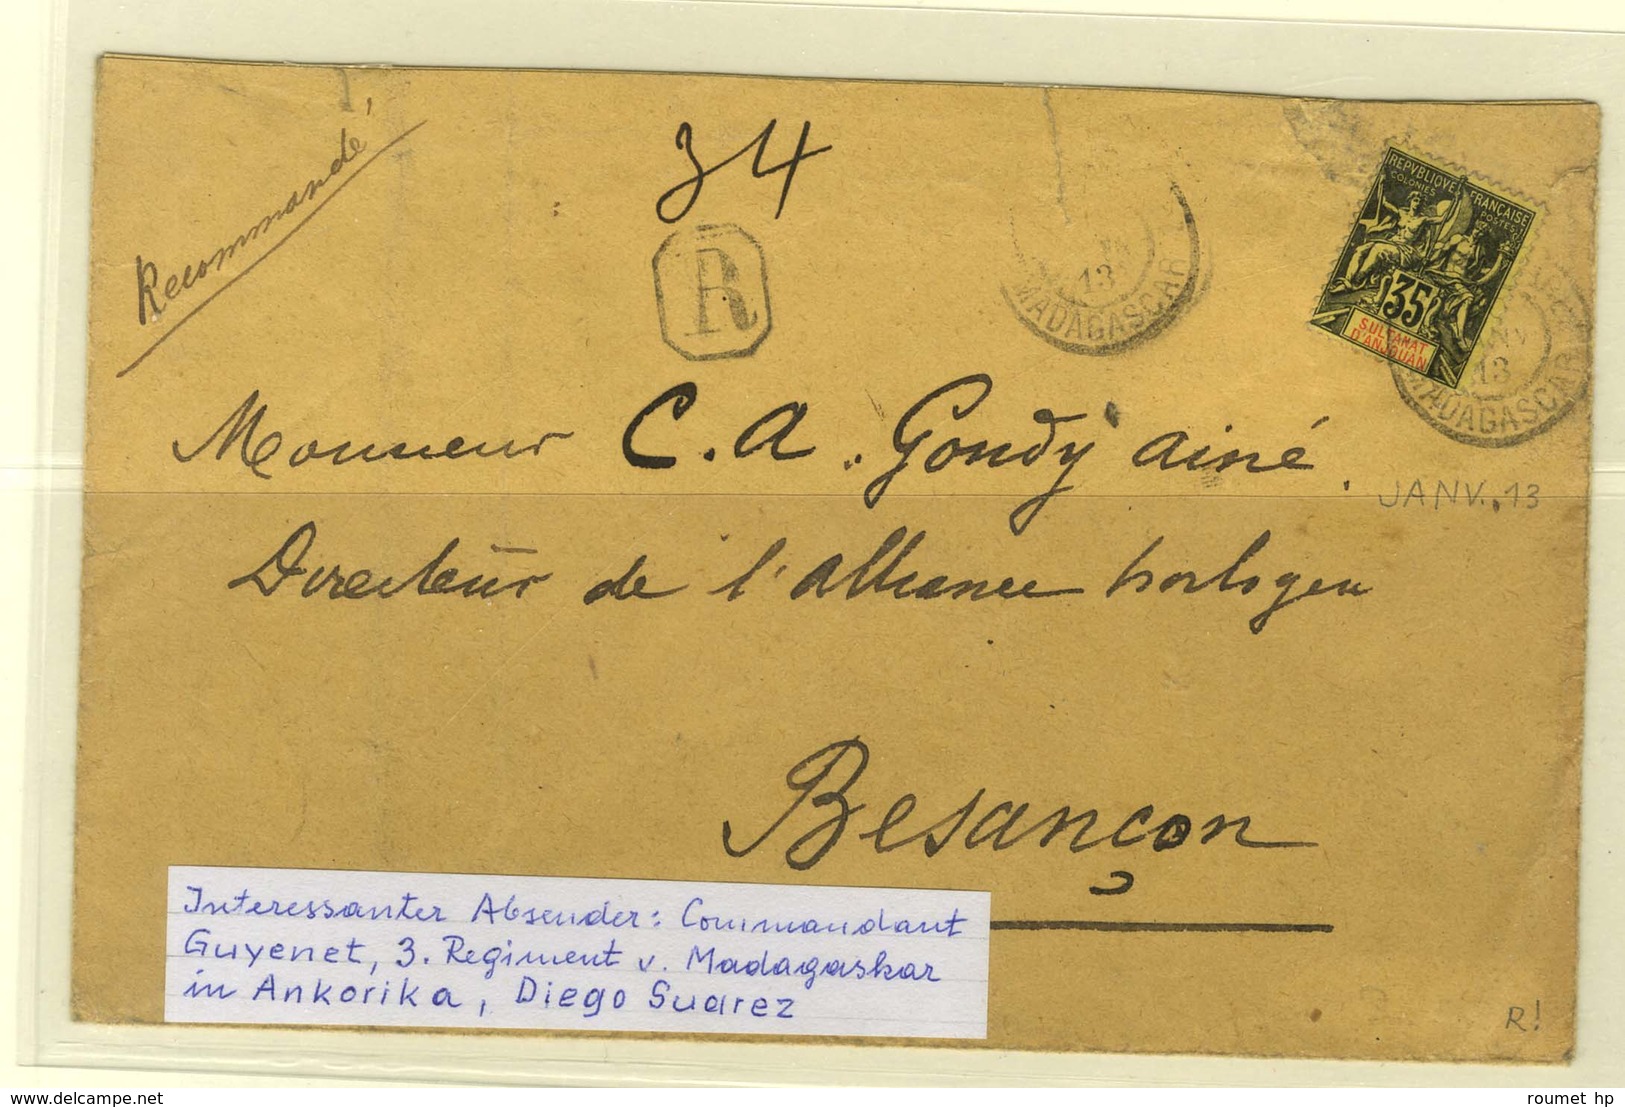 Recommandé
34
R
13
MADAGASCAR
REPVBLIQVE FRANÇAISE
COLONIES POSTES
35
SULTANAT
D'ANJOUAN
13
MADAGASCAR
Monsieur C. A. Gondy ainé.
JANV. 13
Directeur de l'alliance horlogere
Besançon
Interessanter Absender: Commandant
Guyenet, 3. Regiment v. Madagaskar
in Ankorika, Diego Suarez
R!
delcampe.net
roumet hp